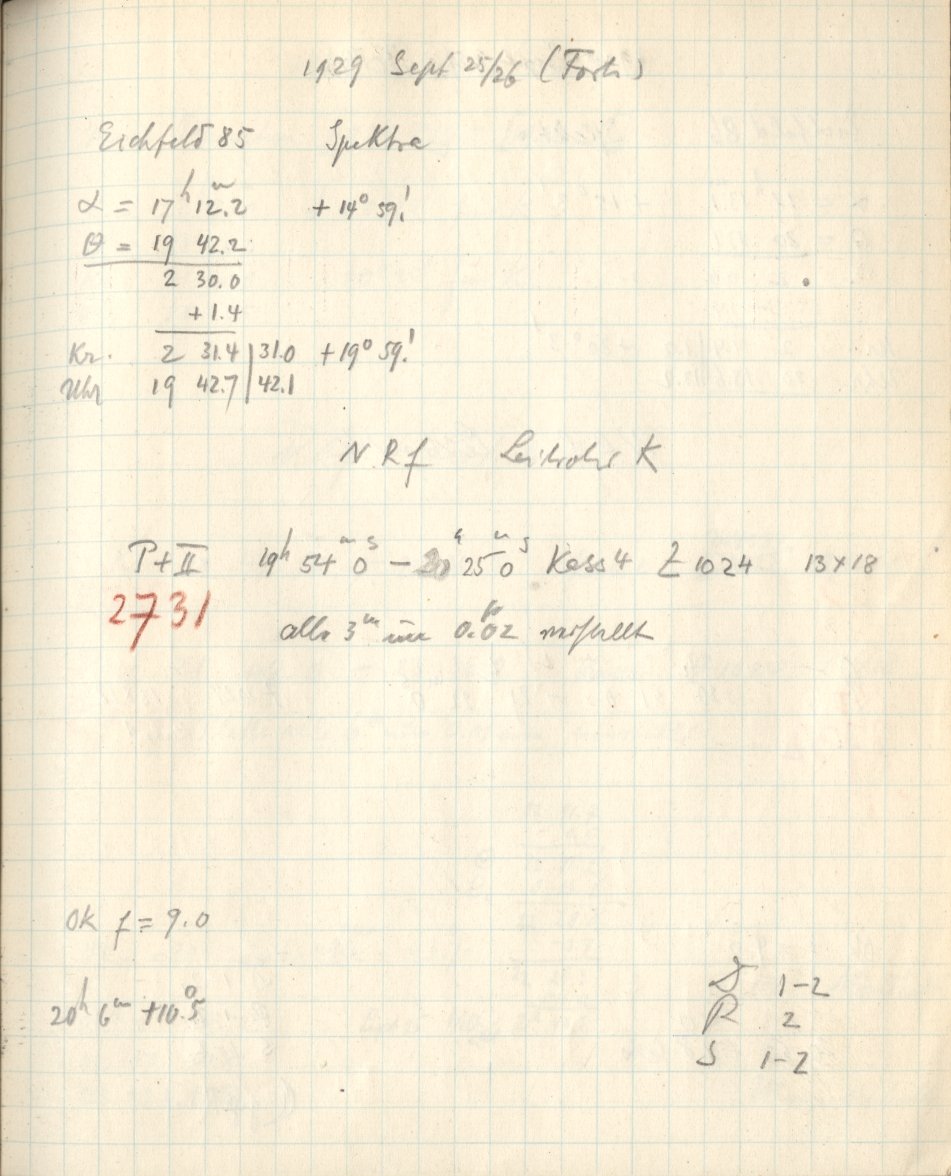 1929 Sept 25/26 (Forts)
Eichfeld 85 Spektra
α = 17ʰ 12.ᵐ2 + 14° 59.'
θ = 19 42.2
2 30.0
+ 1.4
Kr. 2 31.4 | 31.0 + 19° 59.'
Uhr 19 42.7 | 42.1
N R f Leitrohr K
P + II 19ʰ 54ᵐ 0ˢ – 20ʰ 25ᵐ 0ˢ Kass 4 Z 1024 13 × 18
2731
alle 3ᵐ um 0.02 verstellt
OK f = 9.0
20ʰ 6ᵐ + 10.°5
D 1-2
R 2
S 1-2